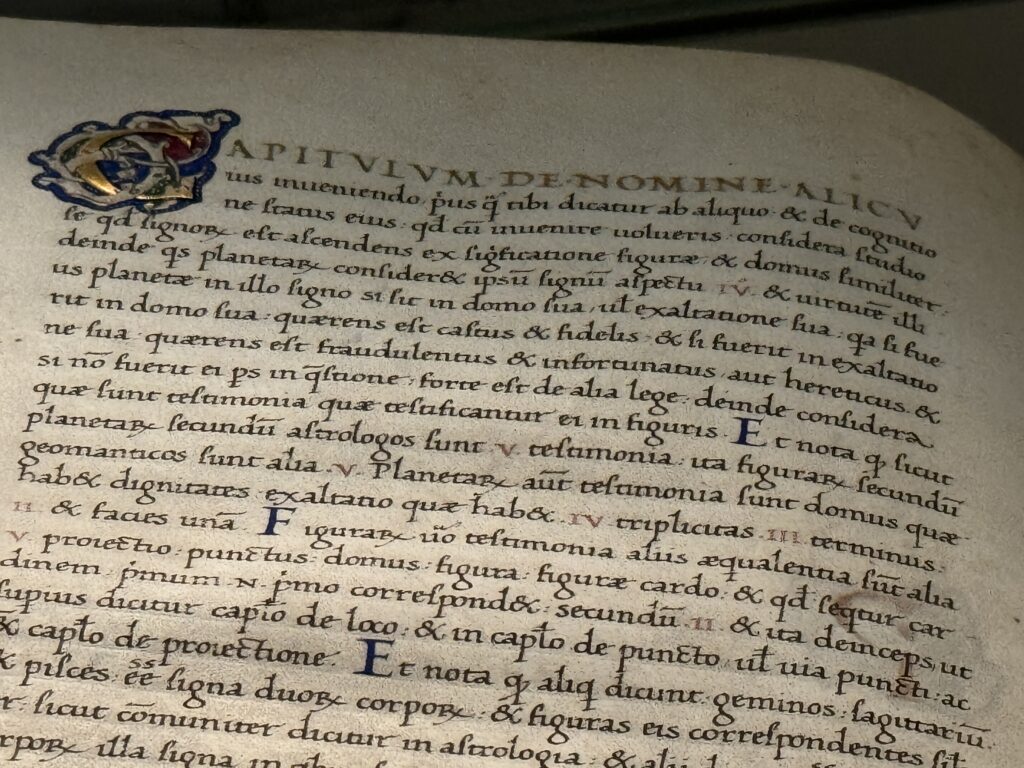 CAPITVLVM·DE·NOMINE·ALICV
ius inueniendo. p̓us q̄ tibi dicatur ab aliquo· & de cognitio
ne status eius· qđ cū inuenire uolueris· considera studio
se qđ signoꝝ est ascendens ex significatione figuræ· & domus similiter·
deinde q̄s planetaꝝ consider& ipsū signū aspectu IV· & uirtutē illi
us planetæ in illo signo si sit in domo sua, ul̓ exaltatione sua· qa si fue
rit in domo sua· quærens est castus & fidelis· & si fuerit in exaltatio
ne sua· quærens est fraudulentus & infortunatus, aut hereticus· &
si nō fuerit ei ps in q̄stione· forte est de alia lege· deinde considera
quæ sunt testimonia quæ testificantur ei in figuris· Et nota ꝙ sicut
planetaꝝ secundū astrologos sunt V· testimonia· ita figuraꝝ secundū
geomanticos sunt alia·V· Planetaꝝ aūt testimonia sunt domus quæ
hab& dignitates exaltatio quæ hab&·IV triplicitas·III terminus·
II· & facies unā· Figuraꝝ ūo testimonia aliis æqualentia sūt alia
V· proiectio· punctus· domus· figura· figuræ cardo· & qđ seqtur car
dinem p̓mum N· p̓mo correspond&· secundū·II· & ita deinceps, ut
supius dicitur capio de loco· & in capl̓o de puncto, ul̓ uia puncti· ac
& capl̓o de proiectione· Et nota ꝙ aliq dicunt geminos· sagittariū·
& pisces· ēē signa duoꝝ corpoꝝ· & figuras eis correspondentes sil̓
r· sicut cōmuniter dicitur in astrologia· &
rpoꝝ illa signa in